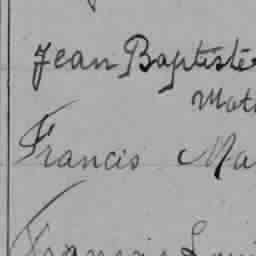 Jean Baptiste
Mat
Francis Ma
Francis Loui